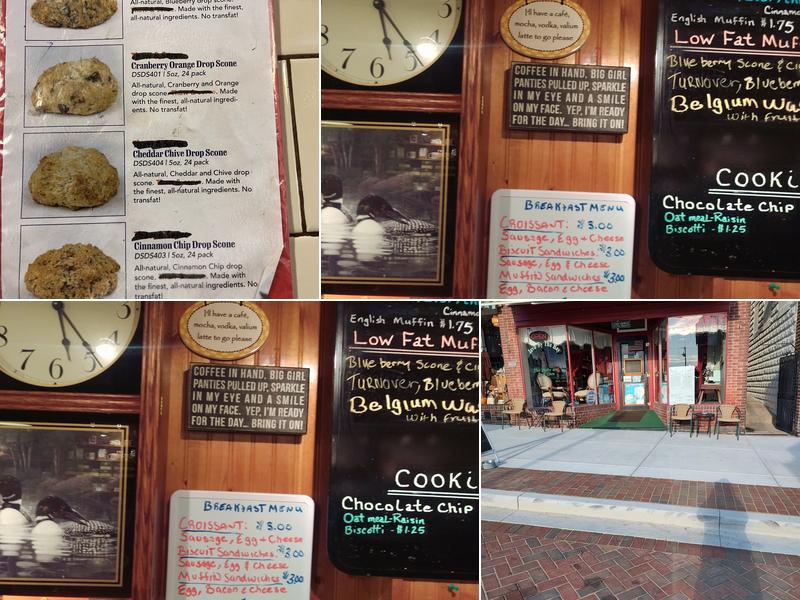 All-natural, Blueberry drop scone
. Made with the finest,
all-natural ingredients. No transfat!
Cranberry Orange Drop Scone
DSDS401 | 5oz, 24 pack
All-natural, Cranberry and Orange
drop scone. Made
with the finest, all-natural ingredi-
ents. No transfat!
Cheddar Chive Drop Scone
DSDS404 | 5oz, 24 pack
All-natural, Cheddar and Chive drop
scone. Made with
the finest, all-natural ingredients. No
transfat!
Cinnamon Chip Drop Scone
DSDS403 | 5oz, 24 pack
All-natural, Cinnamon Chip drop
scone. Made with
the finest, all-natural ingredients. No
transfat!
3
4
5
6
7
8
HI have a café,
mocha, vodka, valium
latte to go please
COFFEE IN HAND, BIG GIRL
PANTIES PULLED UP, SPARKLE
IN MY EYE AND A SMILE
ON MY FACE. YEP, I'M READY
FOR THE DAY... BRING IT ON!
BREAKFAST MENU
CROISSANT: $3.00
Sausage, Egg + Cheese
Biscuit Sandwiches: $3.00
Sausage, Egg & Cheese
Muffin Sandwiches $3.00
Egg, Bacon & Cheese
Cinnamo
English Muffin $1.75
Low Fat Muf
Blueberry Scone & Ci
Turnover, Blueber
Belgium Wa
with Fruit
Cooki
Chocolate Chip
Oatmeal-Raisin
Biscotti - $1.25
3
4
5
6
7
HI have a café,
mocha, vodka, valium
latte to go please
COFFEE IN HAND, BIG GIRL
PANTIES PULLED UP, SPARKLE
IN MY EYE AND A SMILE
ON MY FACE. YEP, I'M READY
FOR THE DAY... BRING IT ON!
BREAKFAST MENU
CROISSANT: $3.00
Sausage, Egg + Cheese
Biscuit Sandwiches: $3.00
Sausage, Egg & Cheese
Muffin Sandwiches $3.00
Egg, Bacon & Cheese
Cinnamo
English Muffin $1.75
Low Fat Muf
Blueberry Scone & Ci
Turnover, Blueber
Belgium Wa
with Fruit
Cooki
Chocolate Chip
Oatmeal-Raisin
Biscotti - $1.25
OPEN